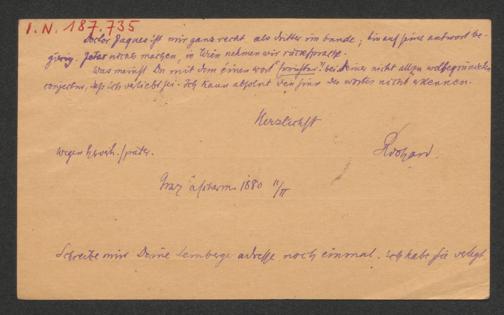 I.N. 187.735
Doctor Jaques ist mir ganz recht als dritter im bunde; bin auf seine antwort be-
gierig. nichts machen, in Wien nehmen wir rücksprache.
Was meinst Du mit dem einen wort bei Deiner nicht allzu wolbegründeten
conjectur, dass ich verliebt sei. Ich kann absolut den sinn des wortes nicht erkennen.
Herzlichst
wegen später. Richard.
Graz 1880 11/II
Schreibe mir Deine lemberger adresse noch einmal. Ich habe sie verlegt.